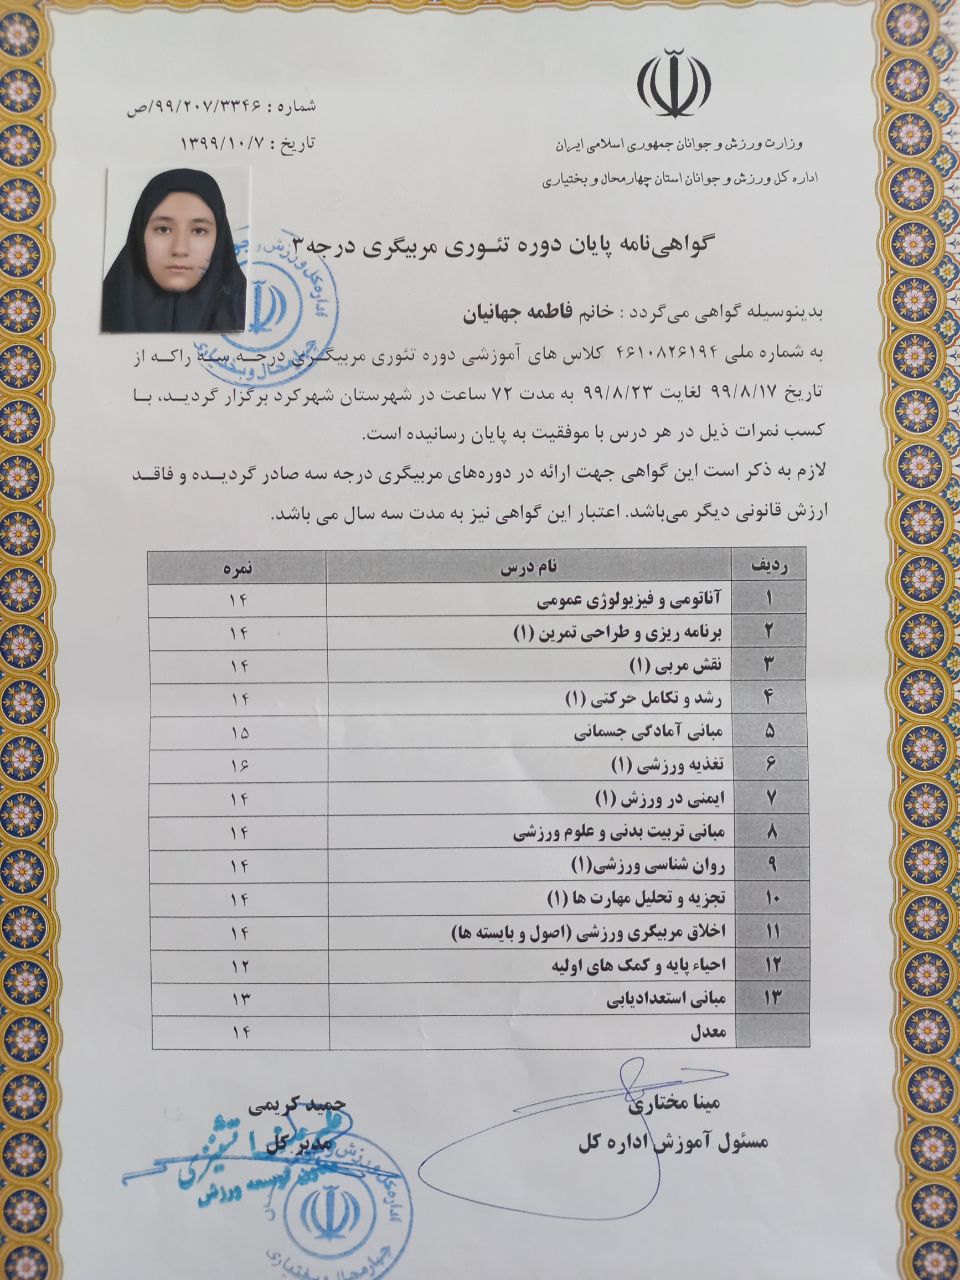 شماره : ۹۹/۲۰۷/۳۳۴۶/ص
تاریخ : ۱۳۹۹/۱۰/۷
وزارت ورزش و جوانان جمهوری اسلامی ایران
اداره کل ورزش و جوانان استان چهارمحال و بختیاری
گواهی‌نامه پایان دوره تئـوری مربیگری درجه۳
بدینوسیله گواهی می‌گردد : خانم فاطمه جهانیان
به شماره ملی ۴۶۱۰۸۲۶۱۹۴ کلاس های آموزشی دوره تئوری مربیگـری درجـه سـه راکـه از
تاریخ ۹۹/۸/۱۷ لغایت ۹۹/۸/۲۳ به مدت ۷۲ ساعت در شهرستان شهرکرد برگزار گردیـد، بـا
کسب نمرات ذیل در هر درس با موفقیت به پایان رسانیده است.
لازم به ذکر است این گواهی جهت ارائه در دوره‌های مربیگری درجه سه صادر گردیـده و فاقـد
ارزش قانونی دیگر می‌باشد. اعتبار این گواهی نیز به مدت سه سال می باشد.
ردیف نام درس نمره
۱ آناتومی و فیزیولوژی عمومی ۱۴
۲ برنامه ریزی و طراحی تمرین (۱) ۱۴
۳ نقش مربی (۱) ۱۴
۴ رشد و تکامل حرکتی (۱) ۱۴
۵ مبانی آمادگی جسمانی ۱۵
۶ تغذیه ورزشی (۱) ۱۶
۷ ایمنی در ورزش (۱) ۱۴
۸ مبانی تربیت بدنی و علوم ورزشی ۱۴
۹ روان شناسی ورزشی(۱) ۱۴
۱۰ تجزیه و تحلیل مهارت ها (۱) ۱۴
۱۱ اخلاق مربیگری ورزشی (اصول و بایسته ها) ۱۴
۱۲ احیاء پایه و کمک های اولیه ۱۲
۱۳ مبانی استعدادیابی ۱۳
معدل ۱۴
مینا مختاری
مسئول آموزش اداره کل
حمید کریمی
مدیر کل
توسعه ورزش
اداره کل ورزش و
چهارمحال و بختیاری